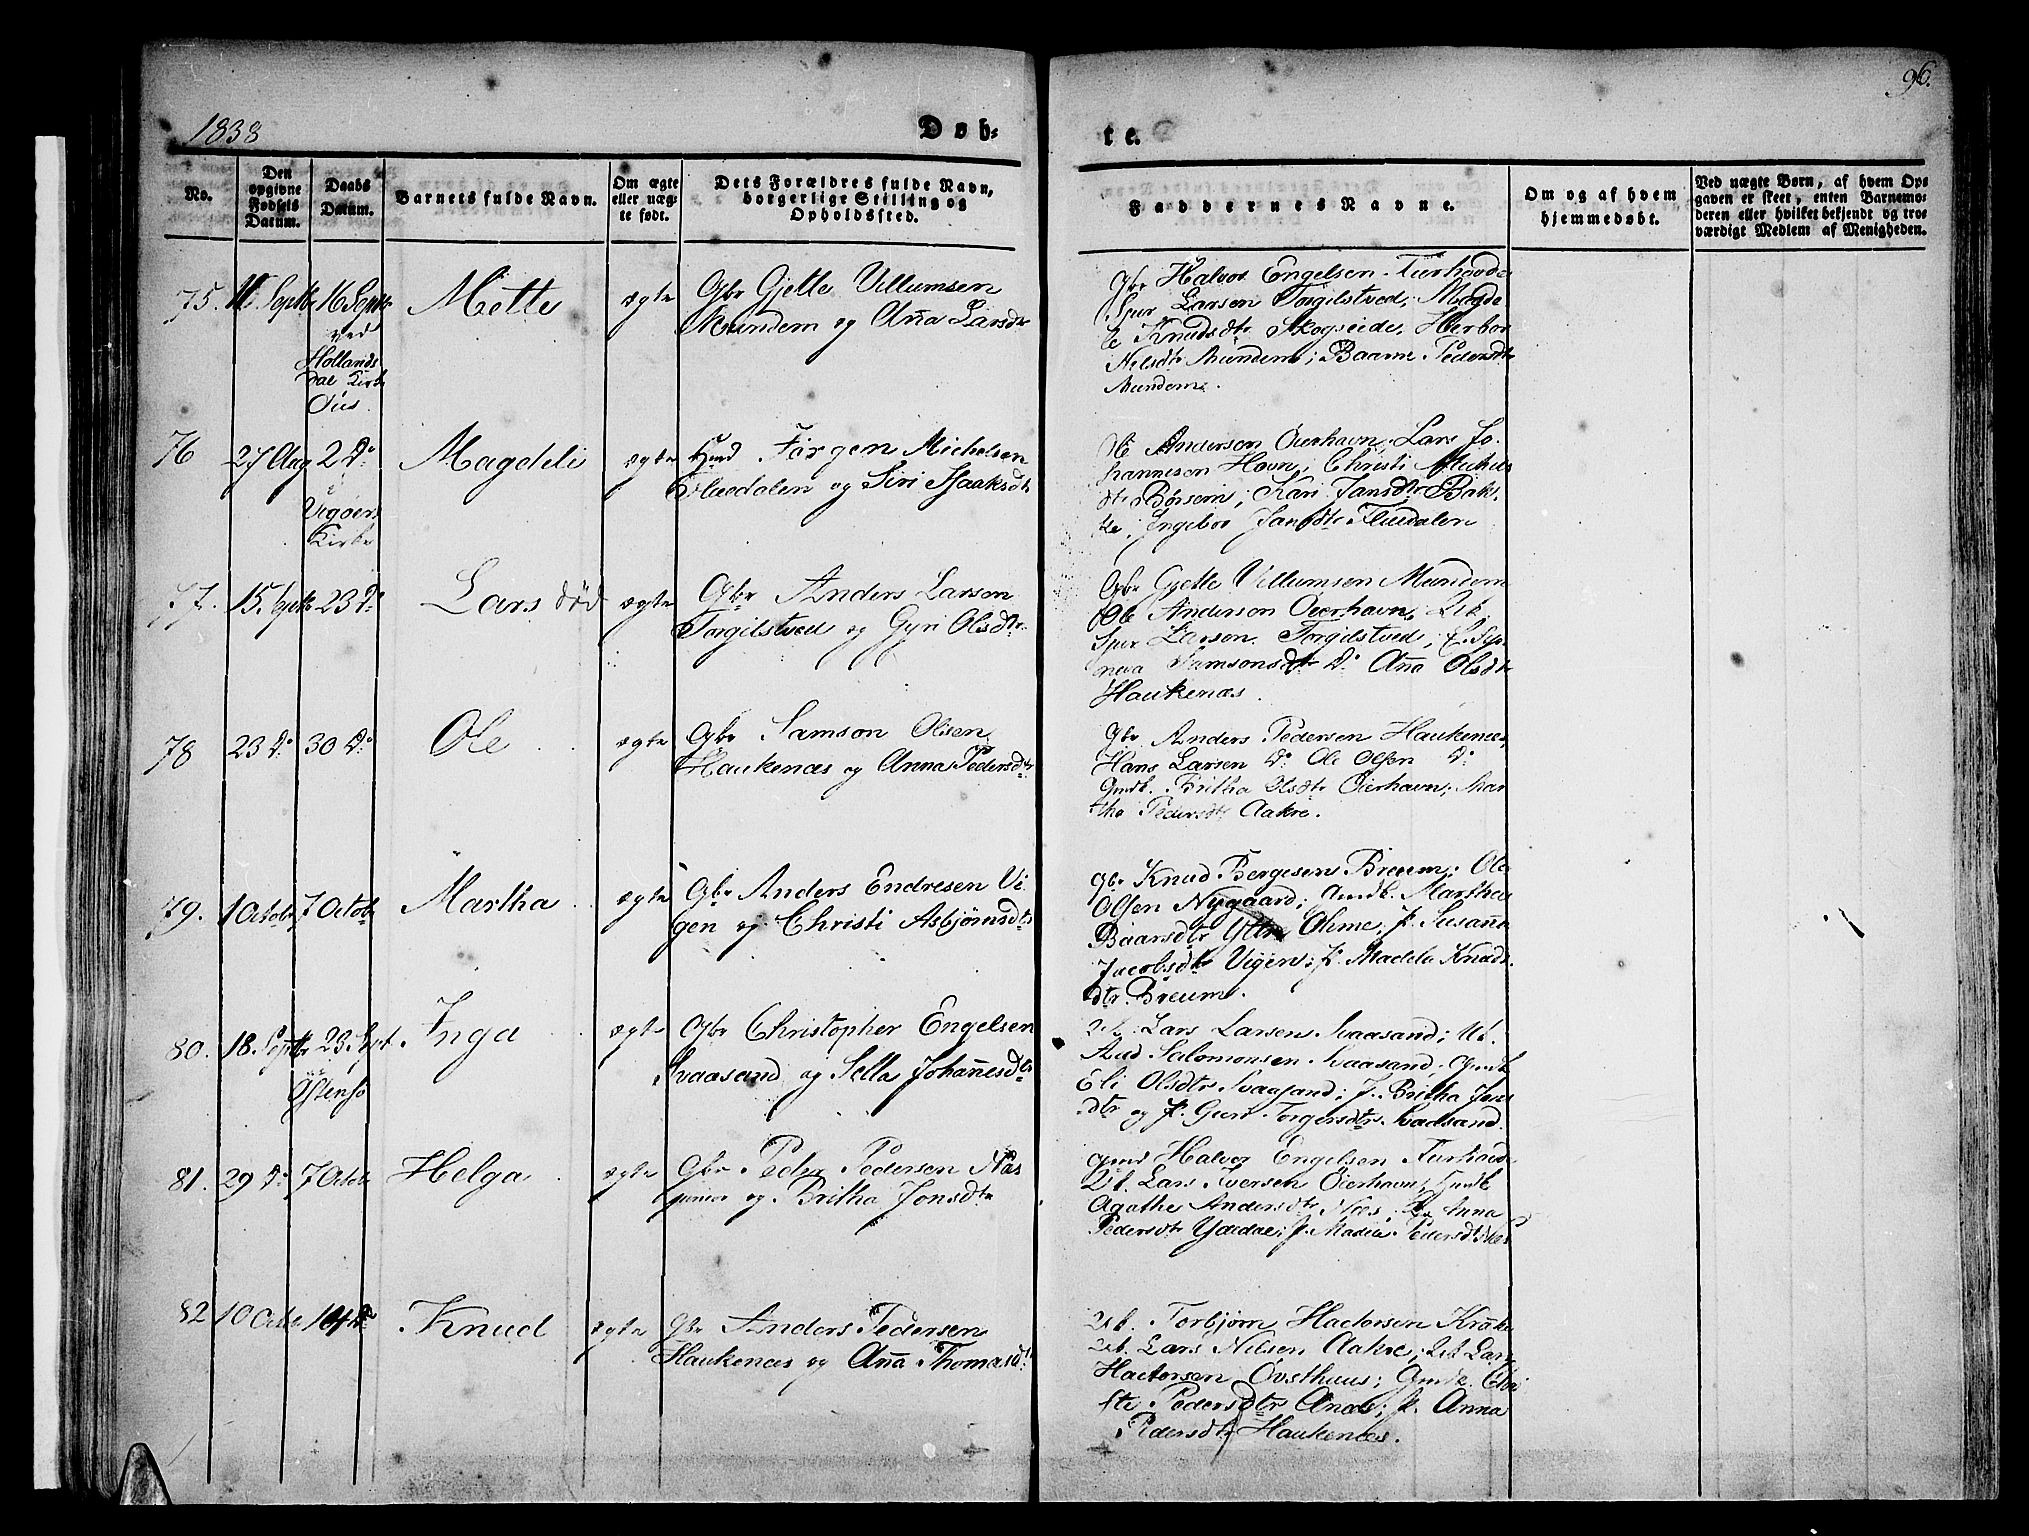 96.
1838
Døb-
te.
No.
Den
opgivne
Fødsels
Datum.
Daabs
Datum.
Barnets fulde Navn.
Om ægte
eller uæg-
te født.
Dets Forældres fulde Navn,
borgerlige Stilling og
Opholdssted.
Faddernes Navne.
Om og af hvem
hjemmedøbt.
Ved uægte Børn, af hvem Op-
gaven er skeet, enten Barnemo-
deren eller hvilket bekjendt og tro-
værdigt Medlem af Menigheden.
75.
16 Septbr
ved
Hollands
dal Kirke
Mette
ægte
Gbr Gjette Villumsen
Mundem og Anna Larsdtr
Gbr Halvor Engelsen
Sjur Larsen Torgilstved, Magde
li Knudsdtr Skogseide, Herbor
Nilsdtr Mundem; Baarni Pedersdtr
Mundem.
76
27 Aug
2 Do
i
Vigøers
Kirke
Magdeli
ægte
Jørgen Michelsen
og Siri Isaaksdtr
Ole Anderson Øierhavn, Lars Jo-
hannesen Havn; Christi Michels
dtr Børsem; Kari Jansdtr Bak-
ke, Ingebor Jansdtr
77.
15. Septbr
23 Do
Lars død
ægte
Gbr Anders Larsen
Torgilstved og Gyri Olsdtr
Gbr Gjette Villumsen Mundem
Ole Anderson Øierhavn, Uk.
Sjur Larson Torgilstved,
neva Samsonsdtr Do Anna Olsdtr
Haukenæs.
78
23 Do
30 Do
Ole
ægte
Gbr Samson Olsen
Haukenæs og Anna Pedersdtr
Gbr Anders Pedersen Haukenæs,
Hans Larsen Do Ole Olsen Do
Gmdk. Britha Olsdtr Øierhavn; Mar
tha Pedersdtr Aakre.
79.
1 Octobr
7 Octobr
Martha
ægte
Gbr Anders Endresen Vi-
gen og Christi Asbjørnsdtr
Gbr Knud Børgesen Breum; Ole
Olsen Nygaard; Gmdk. Marthea
Baarsdtr Yttre Ohme, P. Susanna
Jacobsdtr Vigen; P. Madde Knuds-
dtr Breum.
80.
18. Septbr
23 Sept
Østensø
Inga
ægte
Gbr Christopher Engelsen
Svaasand og Sella Johannesdtr
Uk. Lars Larsen Svaasand; Uk.
Aad Salomonsen Svaasand, Gmdk
Eli Olsdtr Svaasand; P. Britha Jons
dtr og P. Guri Torgersdtr Svaasand.
81.
29 Do
7 Octobr
Helga
ægte
Gbr Peder Pedersen Næs
junior og Britha Jonsdtr
Gmd Halvor Engelsen
Uk. Lars Iversen Øierhavn; Gmdk
Agathe Andersdtr Næs; P. Anna
Pedersdtr; P. Madele Pedersdtr Næs
82
10 Octbr
14 Do
Knud
ægte
Gbr Anders Pedersen
Haukenæs og Anna Thomasdtr
Uk. Torbjørn Hactorsen Kråke
Uk. Lars Nilsen Aakre, Uk Lars
Hactorsen Øvsthuus; Gmdk. Chri
sti Pedersdtr; P. Anna
Pedersdtr Haukenæs.